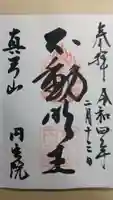 奉拝 令和四年
二月
不動明王
真弓山
円生院